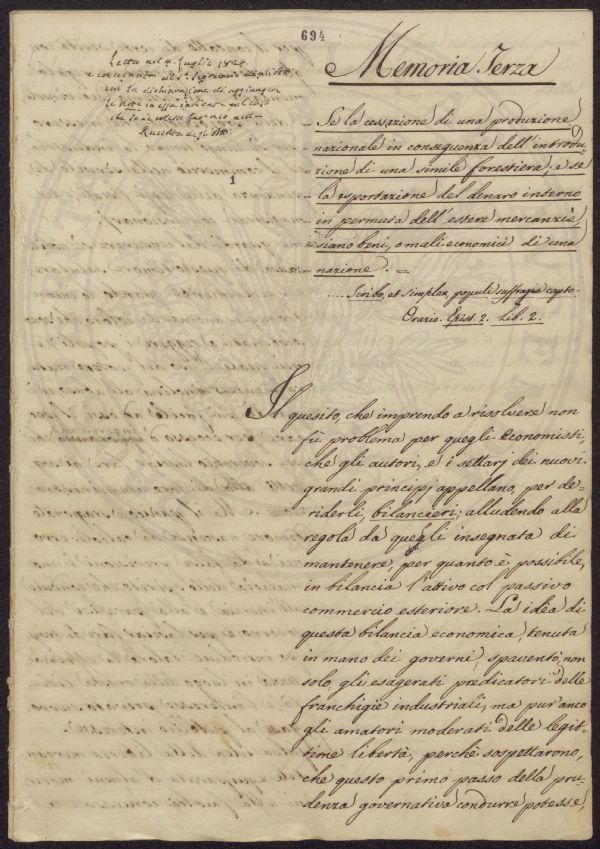 694
Memoria Terza
Letta nel 4. Luglio 1824
e consegnata al Sr. Segretario degli Atti
con la dichiarazione di aggiungere
le note in essa indicate nel caso
che la si volesse far uso nella
Raccolta degli Atti.
1
Se la cessazione di una produzione
nazionale in conseguenza dell'introdu-
zione di una simile forestiera; e se
la esportazione del denaro interno
in permuta dell'estere mercanzie
siano beni, o mali economici di una
nazione. =
.... Scribo, et simplex populi suffragia capto.
Orazio. Epist. 2. Lib. 2.
Il quesito, che imprendo a risolvere non
fù problema per quegli Economisti,
che gli autori, e i settarj dei nuovi
grandi principj appellano, per de-
riderli, bilancieri; alludendo alla
regola da quegli insegnata di
mantenere, per quanto è possibile,
in bilancia l'attivo col passivo
commercio esteriore. La idea di
questa bilancia economica, tenuta
in mano dei governi, spaventò, non
solo, gli esagerati predicatori delle
franchigie industriali, ma pur'anco
gli amatori moderati delle legit-
time libertà, perchè sospettarono,
che questo primo passo della pru-
denza governativa condurre potesse,